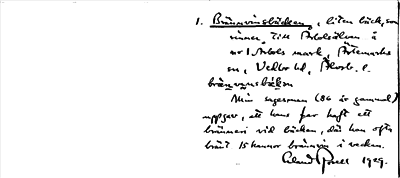 1. Brännvinsbäcken, liten bäck, som
rinner till Arbolsälven å
nr 1 Arbols mark, Ärtemarks
sn, Vedbo hd, Älvsb. l.
brännvinsbäkən
Min sagesman (86 år gammal)
uppgav, att hans far haft ett
bränneri vid bäcken, där han ofta
bränt 15 kannor brännvin i veckan.
1929.